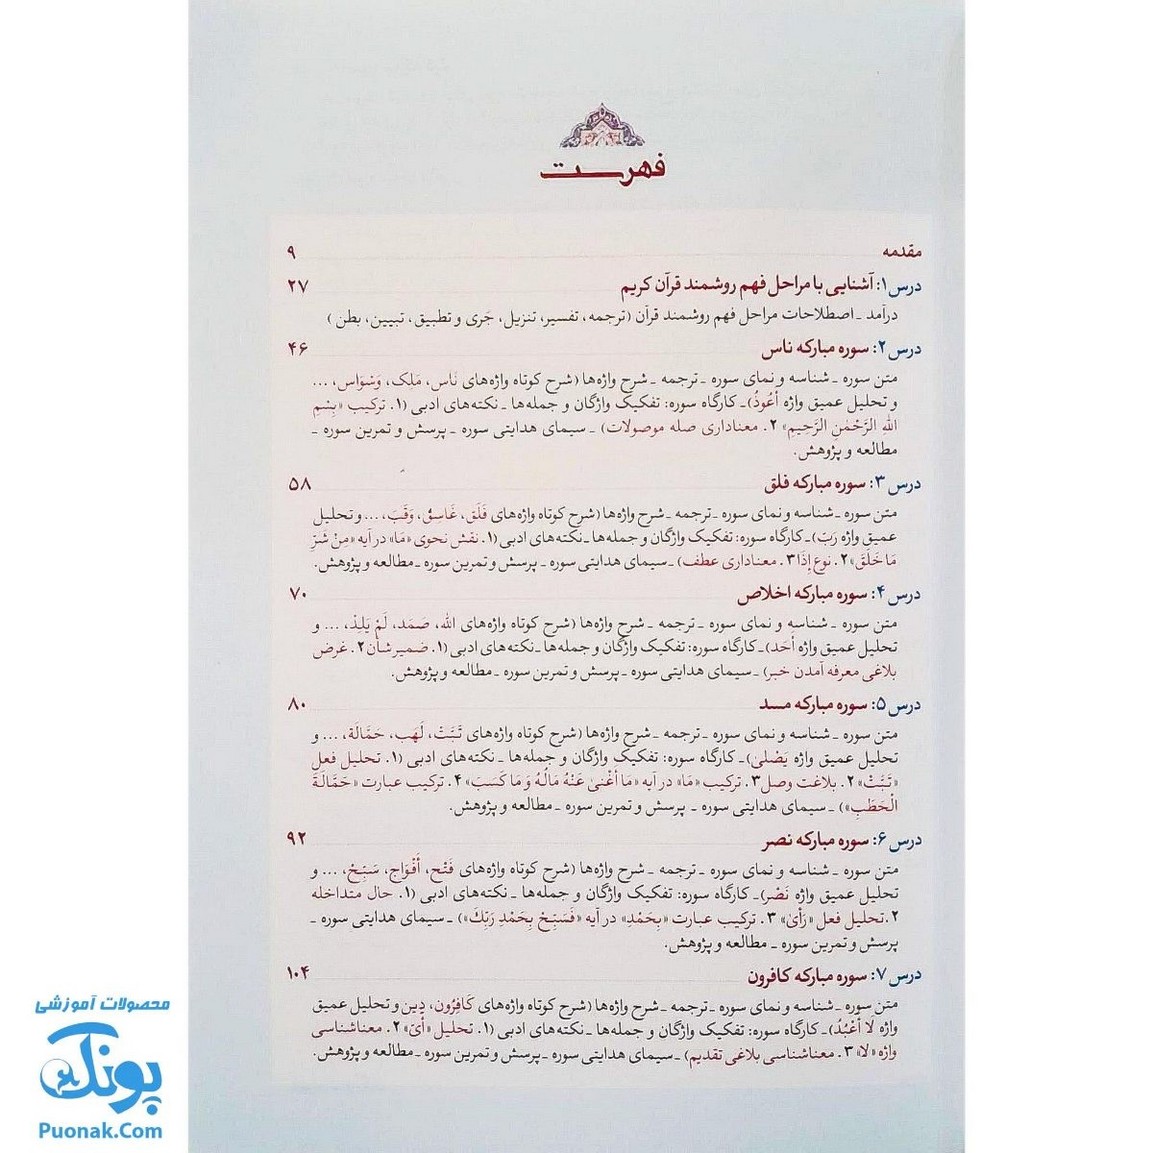 فهرست
مقدمه ۹
درس۱: آشنایی با مراحل فهم روشمند قرآن کریم ۲۷
درآمد ـ اصطلاحات مراحل فهم روشمند قرآن (ترجمه، تفسیر، تنزیل، جَری و تطبیق، تبیین، بطن )
درس۲: سوره مبارکه ناس ۴۶
متن سوره ـ شناسه و نمای سوره ـ ترجمه ـ شرح واژه‌ها (شرح کوتاه واژه‌های نَاس، مَلِک، وَسْوَاس، ...
و تحلیل عمیق واژه أَعُوذُ)ـ کارگاه سوره: تفکیک واژگان و جمله‌ها ـ نکته‌های ادبی (۱. ترکیب «بِسْمِ
اللهِ الرَّحْمٰنِ الرَّحِیمِ» ۲. معناداری صله موصولات) ـ سیمای هدایتی سوره ـ پرسش و تمرین سوره ـ
مطالعه و پژوهش.
درس۳: سوره مبارکه فلق ۵۸
متن سوره ـ شناسه و نمای سوره ـ ترجمه ـ شرح واژه‌ها (شرح کوتاه واژه‌های فَلَق، غَاسِق، وَقَبَ، ... و تحلیل
عمیق واژه رَبّ)ـ کارگاه سوره: تفکیک واژگان و جمله‌ها ـ نکته‌های ادبی (۱. نقش نحوی «مَا» در آیه «مِنْ شَرِّ
مَا خَلَقَ» ۲. نوع إِذَا ۳. معناداری عطف) ـ سیمای هدایتی سوره ـ پرسش و تمرین سوره ـ مطالعه و پژوهش.
درس۴: سوره مبارکه اخلاص ۷۰
متن سوره ـ شناسه و نمای سوره ـ ترجمه ـ شرح واژه‌ها (شرح کوتاه واژه‌های الله، صَمَد، لَمْ یَلِدْ، ... و
تحلیل عمیق واژه أَحَد)ـ کارگاه سوره: تفکیک واژگان و جمله‌ها ـ نکته‌های ادبی (۱. ضمیر شأن ۲. غرض
بلاغی معرفه آمدن خبر) ـ سیمای هدایتی سوره ـ پرسش و تمرین سوره ـ مطالعه و پژوهش.
درس۵: سوره مبارکه مسد ۸۰
متن سوره ـ شناسه و نمای سوره ـ ترجمه ـ شرح واژه‌ها (شرح کوتاه واژه‌های تَبَّتْ، لَهَب، حَمَّالَة، ... و
تحلیل عمیق واژه یَصْلیٰ)ـ کارگاه سوره: تفکیک واژگان و جمله‌ها ـ نکته‌های ادبی (۱. تحلیل فعل
«تَبَّتْ» ۲. بلاغت وصل ۳. ترکیب «مَا» در آیه «مَا أَغْنیٰ عَنْهُ مَالُهُ وَ مَا کَسَبَ» ۴. ترکیب عبارت «حَمَّالَةَ
الْحَطَبِ») ـ سیمای هدایتی سوره ـ پرسش و تمرین سوره ـ مطالعه و پژوهش.
درس۶: سوره مبارکه نصر ۹۲
متن سوره ـ شناسه و نمای سوره ـ ترجمه ـ شرح واژه‌ها (شرح کوتاه واژه‌های فَتْح، أَفْوَاج، سَبِّحْ، ... و
تحلیل عمیق واژه نَصْر)ـ کارگاه سوره: تفکیک واژگان و جمله‌ها ـ نکته‌های ادبی (۱. حال متداخله
۲. تحلیل فعل «رَأَیٰ» ۳. ترکیب عبارت «بِحَمْدِ» در آیه «فَسَبِّحْ بِحَمْدِ رَبِّكَ») ـ سیمای هدایتی سوره ـ
پرسش و تمرین سوره ـ مطالعه و پژوهش.
درس۷: سوره مبارکه کافرون ۱۰۴
متن سوره ـ شناسه و نمای سوره ـ ترجمه ـ شرح واژه‌ها (شرح کوتاه واژه‌های کَافِرُون، دِین و تحلیل عمیق
واژه لَا أَعْبُدُ)ـ کارگاه سوره: تفکیک واژگان و جمله‌ها ـ نکته‌های ادبی (۱. تحلیل «أَیّ» ۲. معناشناسی
واژه «لا» ۳. معناشناسی بلاغی تقدیم) ـ سیمای هدایتی سوره ـ پرسش و تمرین سوره ـ مطالعه و پژوهش.
محصولات آموزشی
پونک
Puonak.Com